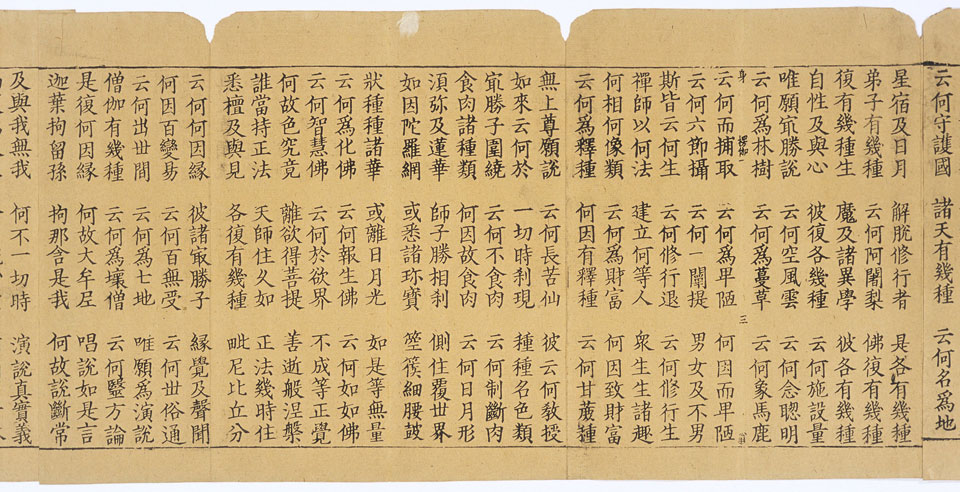 云何守護國 諸天有幾種 云何名爲地
星宿及日月 解脫修行者 是各有幾種
弟子有幾種 云何阿闍梨 佛復有幾種
復有幾種生 魔及諸異學 彼各有幾種
自性及與心 彼復各幾種 云何施設量
唯願冣勝說 云何空風雲 云何念聰明
云何爲林樹 云何爲蔓草 云何象馬鹿
身
三
云何而捕取 云何爲卑陋 何因而卑陋
云何六節攝 云何一闡提 男女及不男
斯皆云何生 云何修行退 云何修行生
禪師以何法 建立何等人 衆生生諸趣
何相何像類 云何爲財富 何因致財富
云何爲釋種 何因有釋種 云何甘蔗種
無上尊願說 云何長苦仙 彼云何教授
如來云何於 一切時刹現 種種名色類
冣勝子圍繞 云何不食肉 云何制斷肉
食肉諸種類 何因故食肉 云何日月形
須弥及蓮華 師子勝相刹 側住覆世界
如因陀羅網 或悉諸珎寶 箜篌細腰鼓
狀種種諸華 或離日月光 如是等無量
云何爲化佛 云何報生佛 云何如如佛
云何智慧佛 云何於欲界 不成等正覺
何故色究竟 離欲得菩提 善逝般涅槃
誰當持正法 天師住久如 正法幾時住
悉檀及與見 各復有幾種 毗尼比丘分
云何何因緣 彼諸冣勝子 緣覺及聲聞
何因百變易 云何百無受 云何世俗通
云何出世間 云何爲七地 唯願爲演說
僧伽有幾種 云何爲壞僧 云何毉方論
是復何因緣 何故大牟尼 唱說如是言
迦葉拘留孫 拘那含是我 何故說斷常
及與我無我 何不一切時 演說真實義